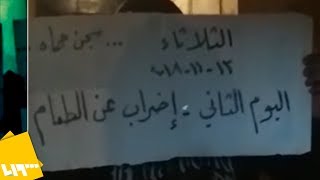 الثلاثاء ... سجن حماه ...
١٣-١١-٢٠١٨
اليوم الثاني - إضراب عن الطعام